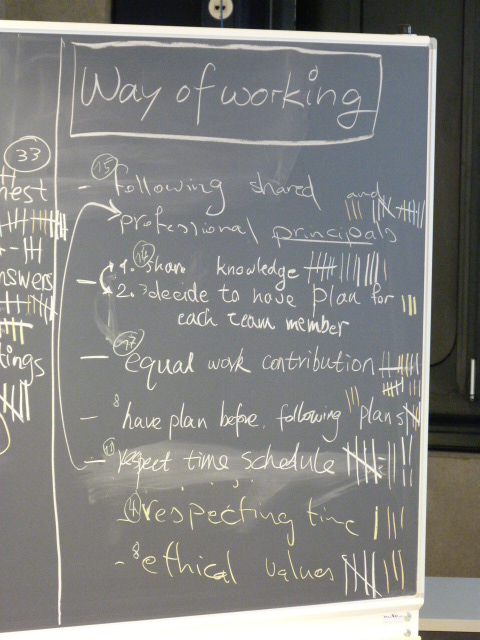 Way of working
33
nest
nswers
tings
15
- following shared and
professional principals
14
- 1. share knowledge
2. 3 decide to have plan for
each team member
17
- equal work contribution
- 8 have plan before, following plans
- respect time schedule
4 respecting time
- 8 ethical values